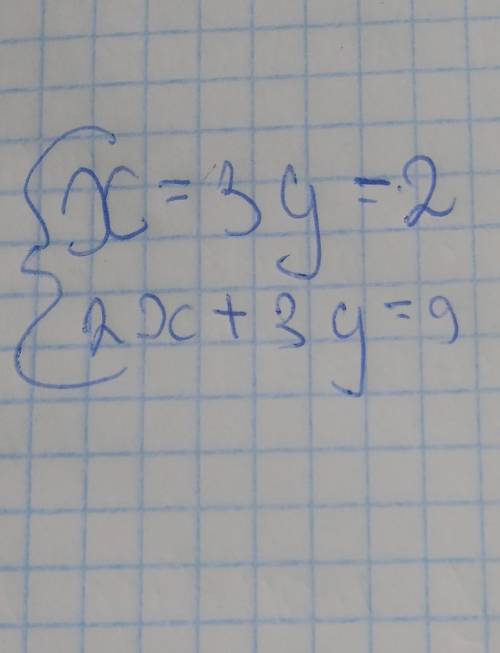 x = 3y = 2
2x + 3y = 9